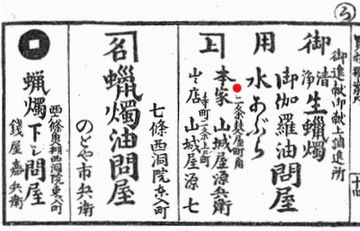 う
御進献御献上御調進所
御清生蠟燭
御伽羅油問屋
御用水あぶら
二条具足屋町角
本家 山城屋源兵衛
出店 山城屋源七
七條西洞院東入町
名 蠟燭油問屋
のとや市兵衛
蝋燭下り問屋
西六條魚棚西洞院東入町
錢屋嘉兵衛